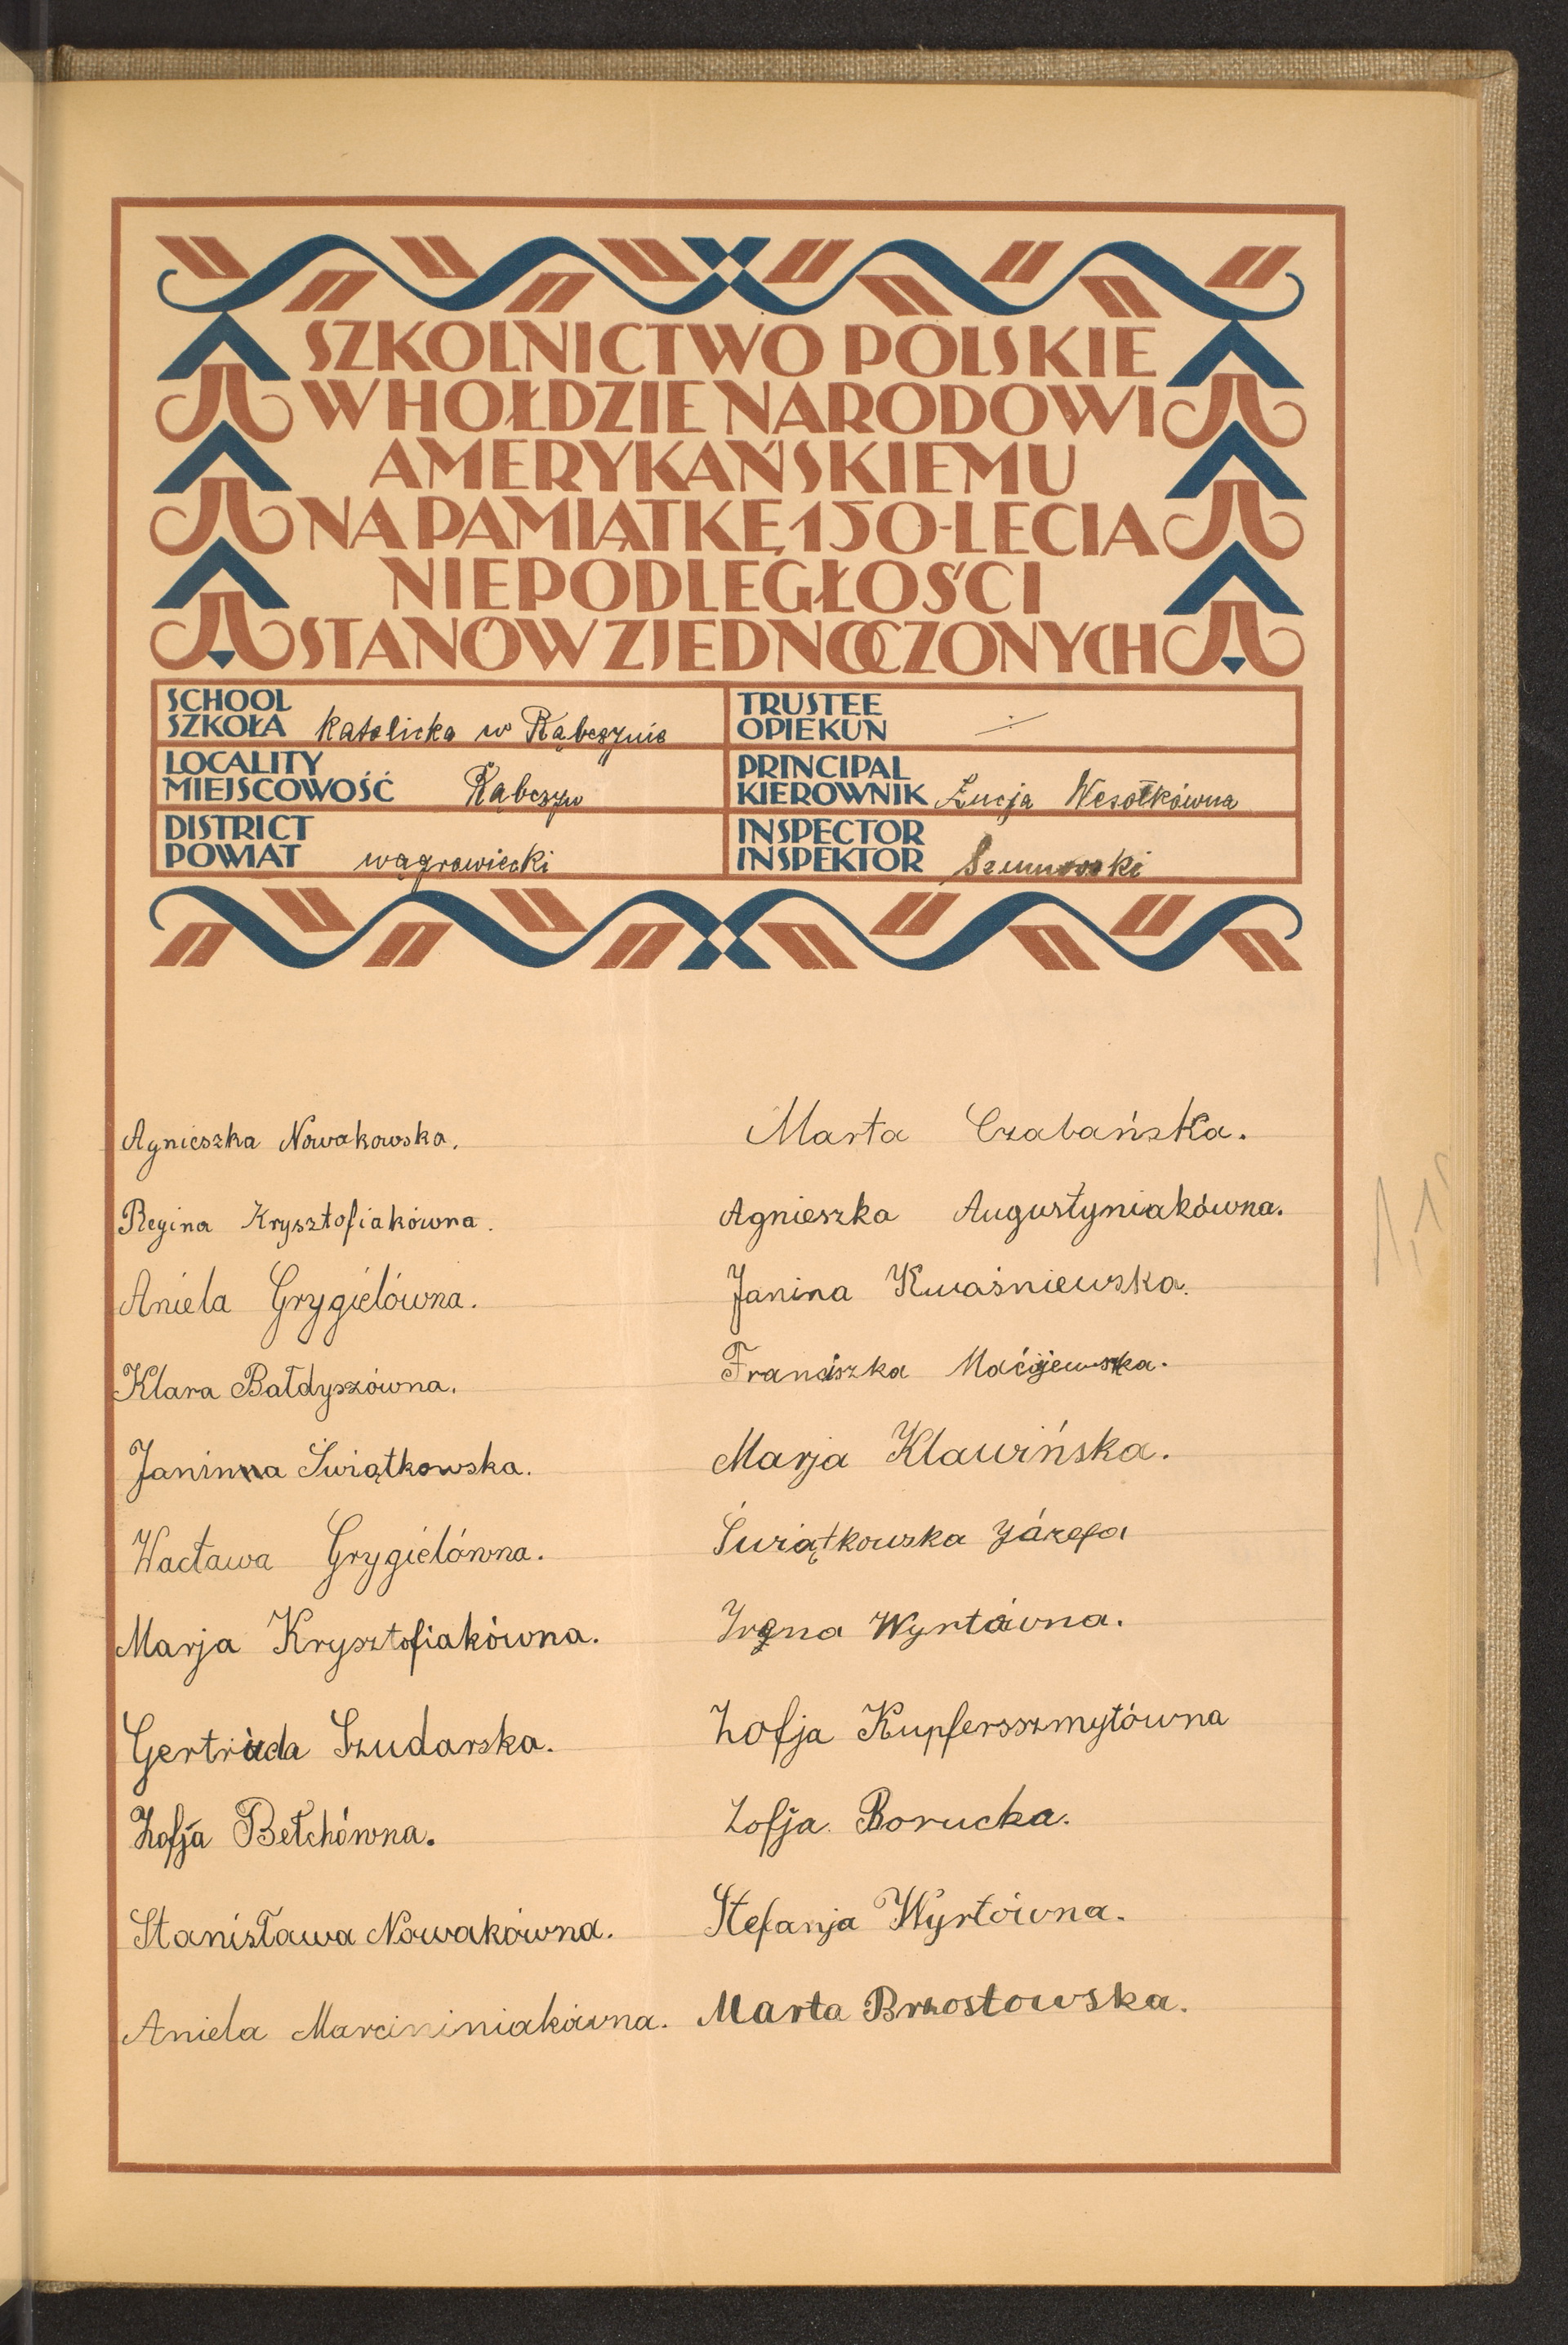 SZKOLNICTWO POLSKIE
W HOŁDZIE NARODOWI
AMERYKAŃSKIEMU
NA PAMIĄTKĘ 150-LECIA
NIEPODLEGŁOŚCI
STANÓW ZJEDNOCZONYCH
SCHOOL
SZKOŁA Katolicka w Rąbczynie
LOCALITY
MIEJSCOWOŚĆ Rąbczyn
DISTRICT
POWIAT wągrowiecki
TRUSTEE
OPIEKUN
PRINCIPAL
KIEROWNIK Łucja Wesołkówna
INSPECTOR
INSPEKTOR
Agnieszka Nowakowska.
Regina Krysztofiakówna.
Aniela Grygielówna.
Klara Bałdyszówna.
Janinna Świątkowska.
Wacława Grygielówna.
Marja Krysztofiakówna.
Gertruda Szudarska.
Zofja Bełchówna.
Stanisława Nowakówna.
Aniela Marcininiakówna.
Marta Czabańska.
Agnieszka Augustyniakówna.
Janina Kwaśniewska.
Franciszka Maciejewska.
Marja Klawińska.
Świątkowska Józefa
Irena Wyrtówna.
Zofja Kupfersszmytówna
Zofja Borucka.
Stefanja Wyrtówna.
Marta Brzostowska.